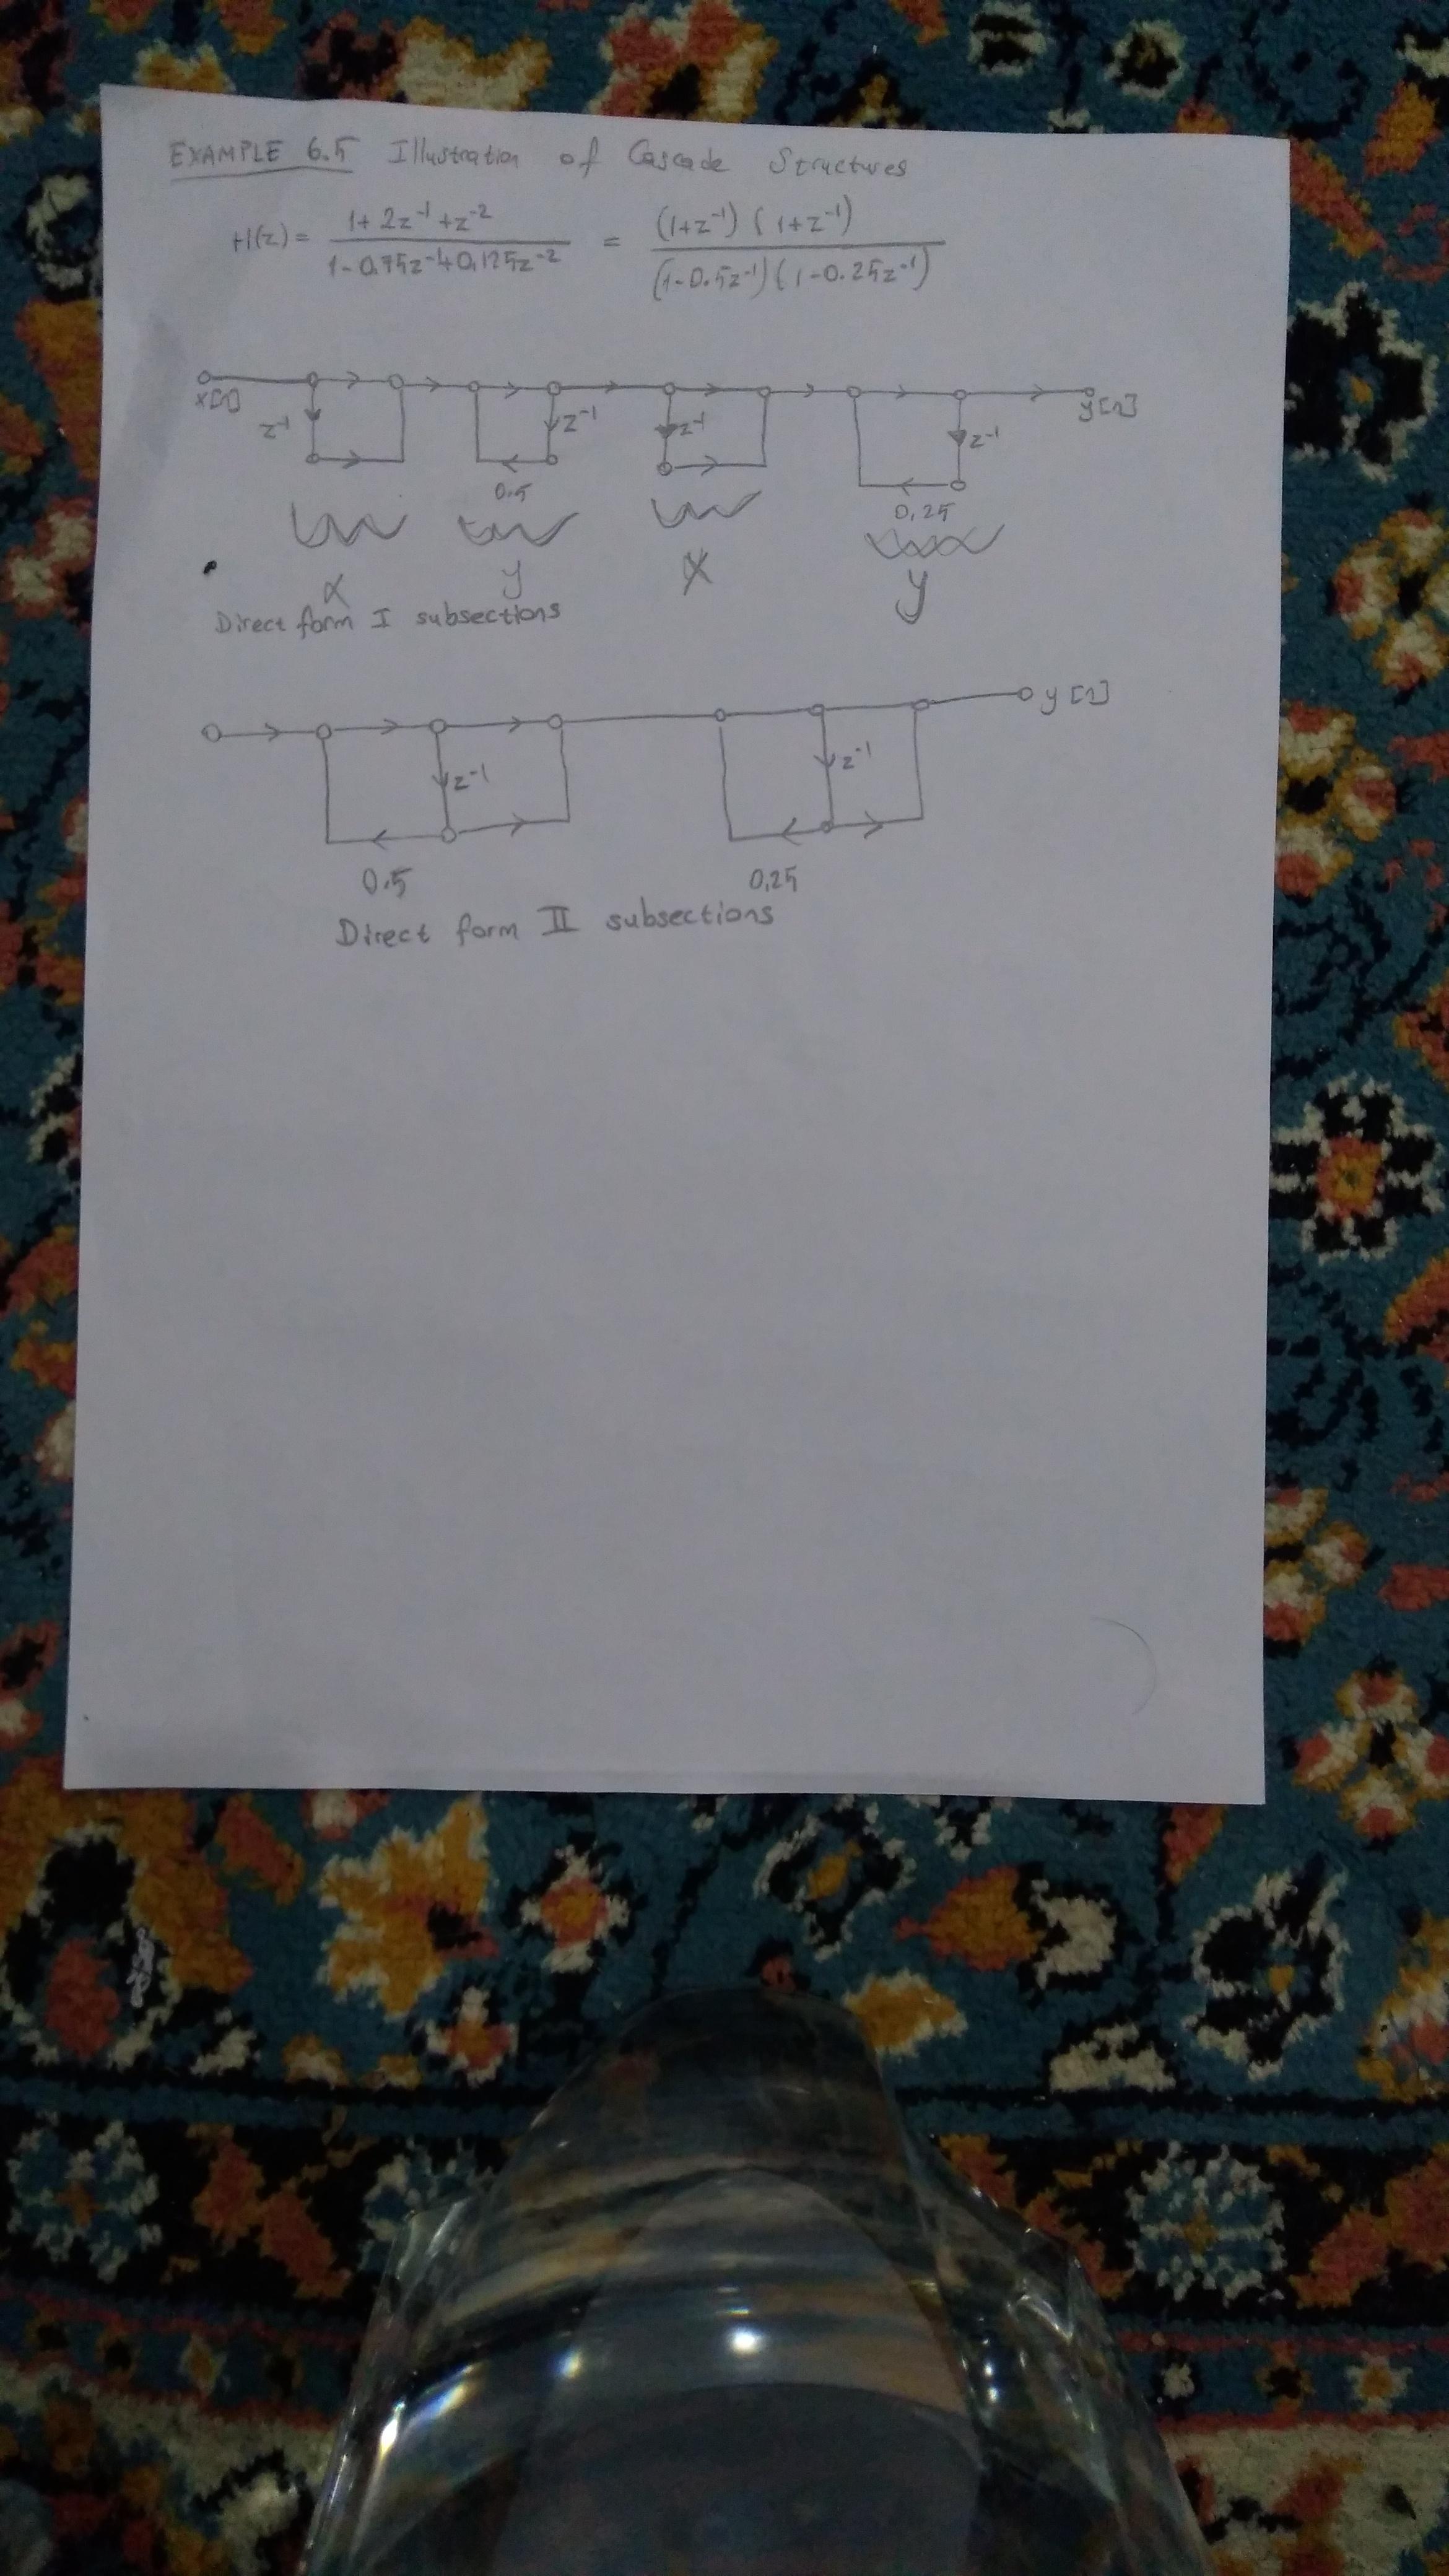 EXAMPLE 6.5 Illustration of Cascade Structures
H(z) = 1+2z⁻¹+z⁻² / 1-0.75z⁻¹+0,125z⁻² = (1+z⁻¹)(1+z⁻¹) / (1-0.5z⁻¹)(1-0.25z⁻¹)
x[n] z⁻¹ z⁻¹ z⁻¹ z⁻¹ y[n]
0.5 0,25
x y x y
Direct form I subsections
y[n]
z⁻¹ z⁻¹
0.5 0,25
Direct form II subsections